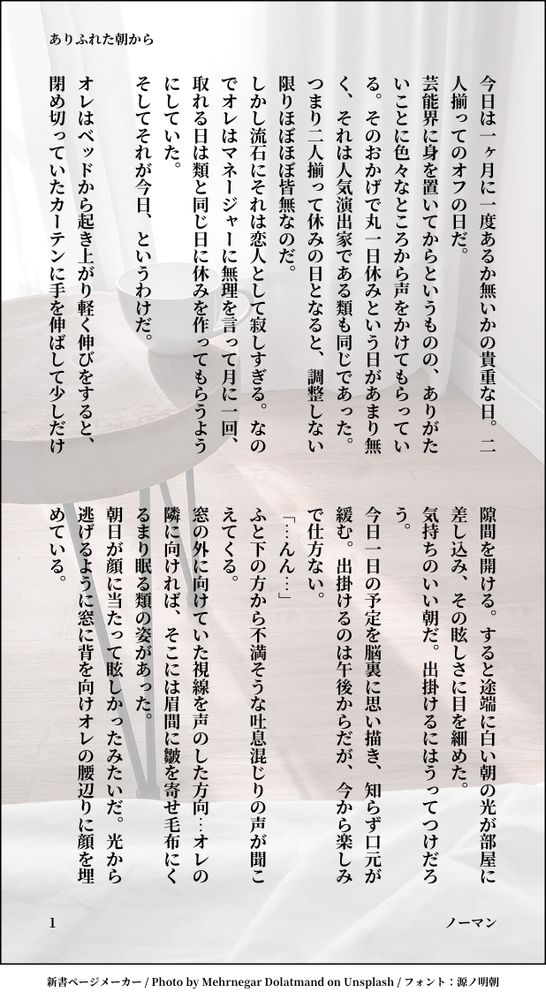 ありふれた朝から
今日は一ヶ月に一度あるか無いかの貴重な日。二
人揃ってのオフの日だ。
芸能界に身を置いてからというものの、ありがた
いことに色々なところから声をかけてもらってい
る。そのおかげで丸一日休みという日があまり無
く、それは人気演出家である類も同じであった。
つまり二人揃って休みの日となると、調整しない
限りほぼほぼ皆無なのだ。
しかし流石にそれは恋人として寂しすぎる。なの
でオレはマネージャーに無理を言って月に一回、
取れる日は類と同じ日に休みを作ってもらうよう
にしていた。
そしてそれが今日、というわけだ。
オレはベッドから起き上がり軽く伸びをすると、
閉め切っていたカーテンに手を伸ばして少しだけ
隙間を開ける。すると途端に白い朝の光が部屋に
差し込み、その眩しさに目を細めた。
気持ちのいい朝だ。出掛けるにはうってつけだろ
う。
今日一日の予定を脳裏に思い描き、知らず口元が
緩む。出掛けるのは午後からだが、今から楽しみ
で仕方ない。
「…んん…」
ふと下の方から不満そうな吐息混じりの声が聞こ
えてくる。
窓の外に向けていた視線を声のした方向…オレの
隣に向ければ、そこには眉間に皺を寄せ毛布にく
るまり眠る類の姿があった。
朝日が顔に当たって眩しかったみたいだ。光から
逃げるように窓に背を向けオレの腰辺りに顔を埋
めている。
1
ノーマン
新書ページメーカー / Photo by Mehrnegar Dolatmand on Unsplash / フォント：源ノ明朝